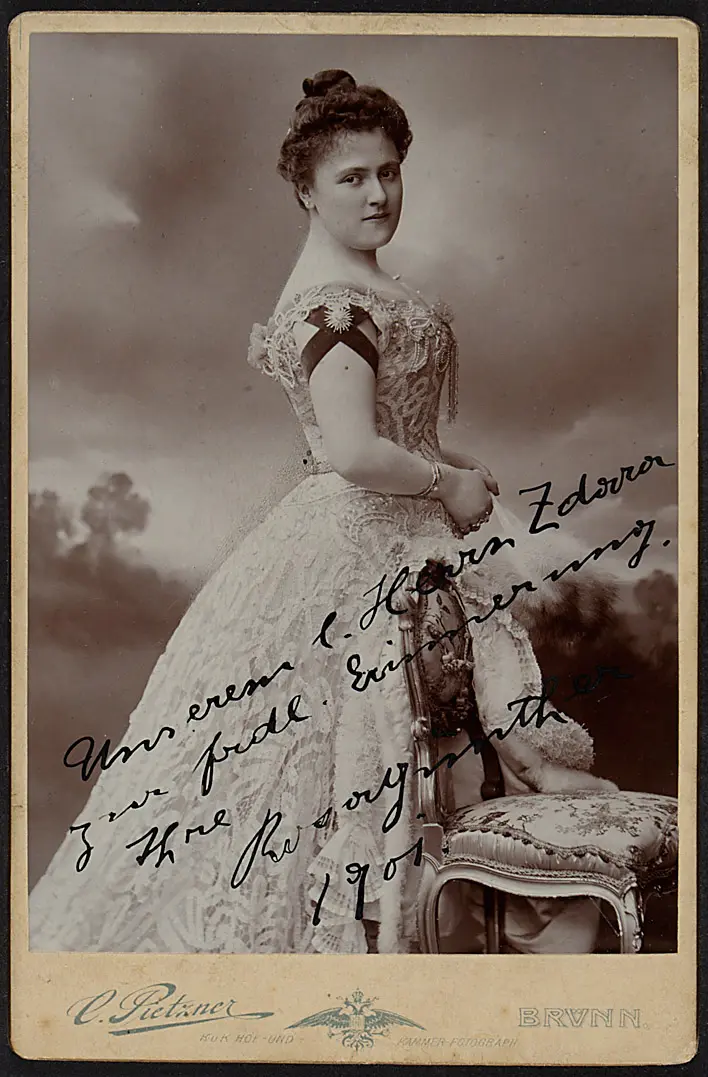 Unserem l. Herrn Zdara
zur frdl. Erinnerung.
Ihre Rosa Günther
1901.
C. Pietzner
K.U.K. HOF-UND KAMMER-FOTOGRAPH
BRVNN.